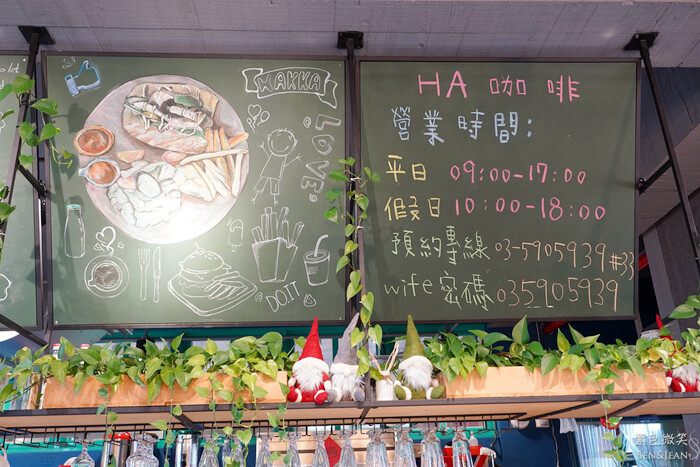 WAKKA
LOVE
DO IT
HA 咖啡
營業時間:
平日 09:00-17:00
假日 10:00-18:00
預約專線 03-5905939 #33
wife 密碼 035905939
BEN&JEAN